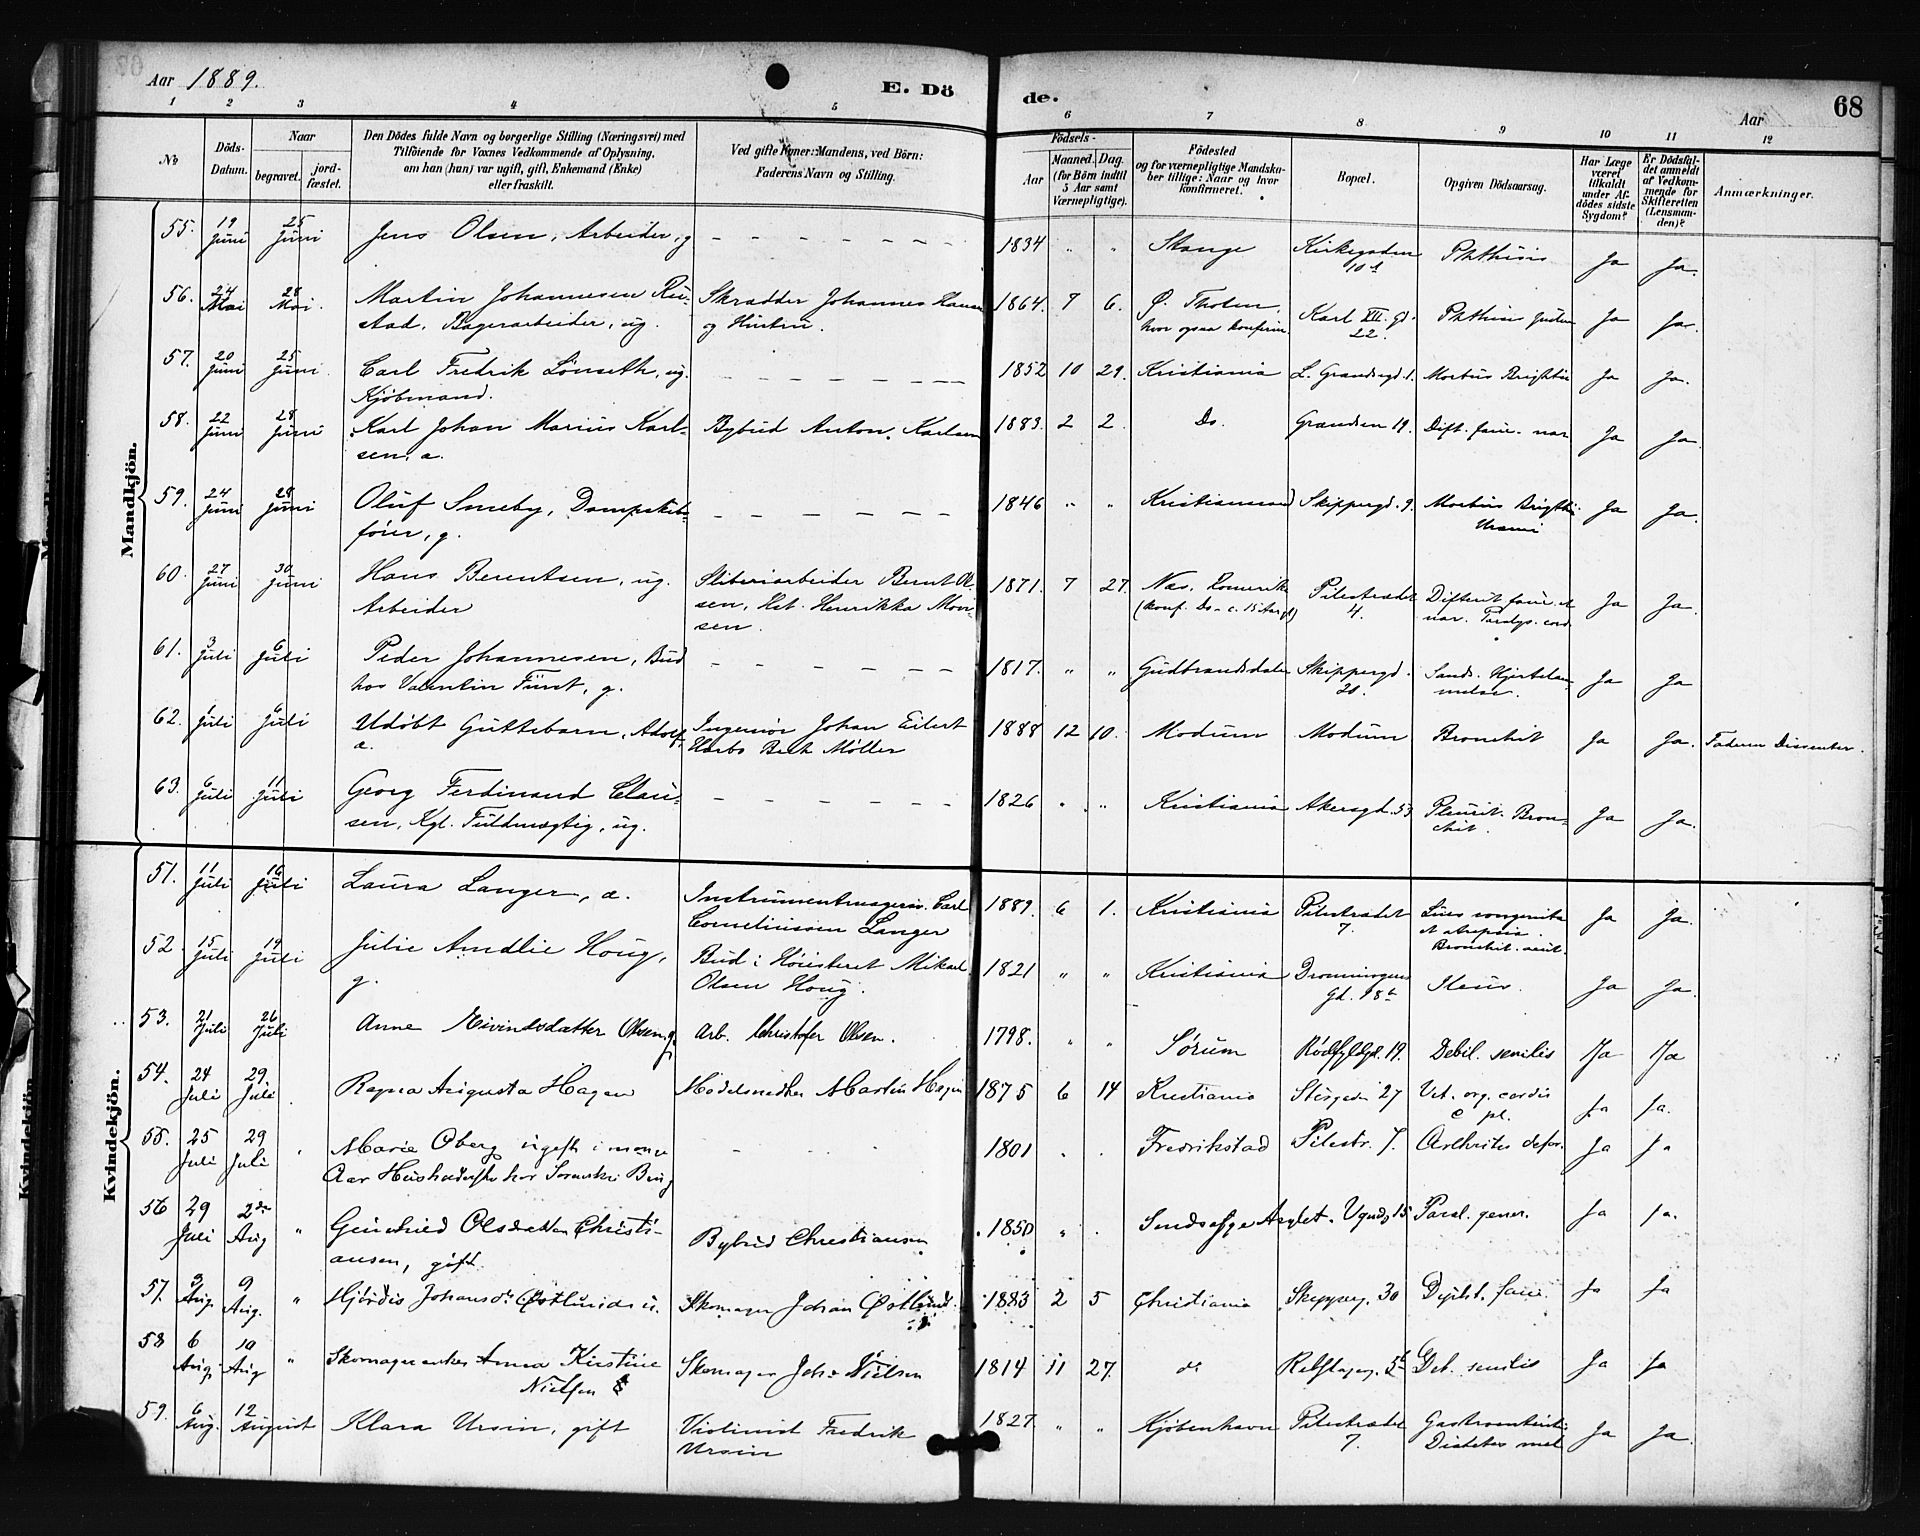 Aar 1889.
E. Dö
de.
Aar
68
1 2 3 4 5 6 7 8 9 10 11 12
No
Döds-
Datum.
Naar
begravet.
jord-
fæstet.
Den Dödes fulde Navn og borgerlige Stilling (Næringsvei) med
Tilföiende for Voxnes Vedkommende af Oplysning,
om han (hun) var ugift, gift, Enkemand (Enke)
eller fraskilt.
Ved gifte Koner: Mandens, ved Börn:
Faderens Navn og Stilling.
Födsels-
Aar
Maaned.
Dag.
(for Börn indtil
5 Aar samt
Værnepligtige).
Födested
og for værnepligtige Mandska-
ber tillige: Naar og hvor
konfirmeret.
Bopæl.
Opgiven Dödsaarsag.
Har Læge
været
tilkaldt
under Af-
dödes sidste
Sygdom?
Er Dödsfal-
det anmeldt
af Vedkom-
mende for
Skifteretten
(Lensman-
den)?
Anmærkninger.
Mandkjön.
55. 19 Juni 25 Juni Jens Olsen, Arbeider, g 1834 " " Stange Kirkegaden 10 Phthisis Ja Ja.
56. 24 Mai 28 Mai. Martin Johannesen Ru- Skrædder Johannes Hansen 1864. 7 6. Ø. Thoten, Karl XII. gd. Phthisis Ja Ja.
stad. Bagerarbeider, ug. og Hustru. hvor ogsaa konfirm 22.
57. 20 Juni 25 Juni. Carl Fredrik Lönseth, ug. 1852 10 29. Kristiania L. Grændsegd. 1. Morbus Brightii Ja Ja.
Kjöbmand.
58. 22 Juni 28 Juni Karl Johan Marius Karl- Bybud Anton Karlsen 1883. 2 2. Do. Grændsen 19. Dift. fauc. nar Ja Ja.
sen, a.
59. 24 Juni 28 Juni Oluf Smeby, Dampskibs- 1846 " " Kristianssand Skippergd. 9. Morbus Brigthii Ja Ja.
förer, g. Uræmi
60. 27 Juni 30 Juni Hans Berentsen, ug. Sliberiarbeider Bernt Ol- 1871. 7 27. Næs. Romerike Pilestrædet Difterit fauc. et Ja Ja.
Arbeider sen, Hst. Henrikka (konf. Ds. c. 15 Aar gl) 4. nar. Paralys. cord
sen.
61. 3 Juli 6 Juli Peder Johannesen, Bud 1817. " " Gudbrandsdalen Skippergd. Ja Ja
hos Valentin Fürst, g.
62. 1 Juli 6 Juli Udöbt Guttebarn, Adolf, Ingeniör Johan Eilert 1888 12 10. Modum Modum Bronchit Ja Ja. Faderen Dissenter.
a. Harbo Bech Möller
63. 6 Juli 11 Juli Georg Ferdinand Clau- 1826 " " Kristiania Akersgd. 53 Pleurit. Bron- Ja Ja.
sen, Kgl. Fuldmægtig, ug. chit.
Kvindekjön.
51. 11 Juli 16 Juli Laura Langer, a. Instrumentmagersv. Carl 1889. 6 1. Kristiania Pilestrædet Lues congenita Ja Ja.
Corneliussen Langer 7. et atrepsia.
Bronchit. acut.
52 15 Juli 19 Juli Julie Amalie Houg, Bud i Höiesteret Mikael 1821 " " Kristiania Dronningens Ileus. Ja Ja.
g. Olsen Houg. Gd. 18
53. 21 Juli 26 Juli Anne Eivindsdatter Olsen, g. Arb. Christofer Olsen. 1798. " " Sørum Rödfyldgd. 19. Debil. senilis Ja Ja
54. 24 Juli 29 Juli Ragna Augusta Hagen Modelsnedker Martin Hagen 1875 6 14 Kristiania 27 Vit. org. cordis Ja Ja.
c pl.
55. 25 Juli 29 Juli " Marie Oberg ugift i mange 1801 Fredrikstad Pilestr. 7. Arthritis defor. Ja Ja
Aar hos
56 29 Juli 2den Aug " Olsdatter Christi- Bybud Christiansen 1850 Asylet. 15 Paral. gener. Ja Ja.
ansen, gift.
57. 3 Aug 9 Aug. " Hjördis Johansdr Østlund Skomager Johan Østlund. 1883 2 5 Christiania Skipperg. 30 Dipht. fauc. Ja Ja
58 6 Aug 10 Aug " Skomagerenke Anna Kirstine Skomager Joh: Nielsen 1814 11 27. do 5 Deb. senilis Ja Ja
Nielsen
59. 6 Aug. 12 August Klara Ursin, gift Violinist Fredrik 1827 " " Kjöbenhavn Pilestrædet Gastroenterit: Ja Ja.
Ursin 7. Diabetes mel